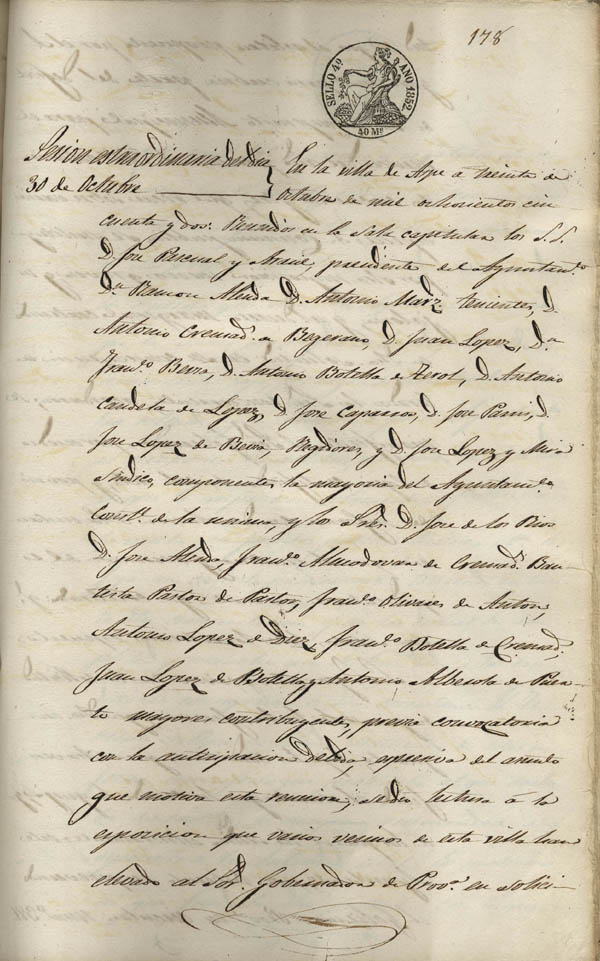 178
SELLO 4º AÑO 1852
40 Ms
Sesion estraordinaria del dia
30 de Octubre
En la villa de Aspe a treinta de
Octubre de mil ochocientos cin
cuenta y dos: Reunidos en la Sala capitular los S.S.
D. Jose Pascual y presidente del Ayuntam.º
D.n Ramon D. Antonio tenientes, D.
Antonio Cremad.s de Bezerano, D. Juan Lopez, D.n
Fran.co D. Antonio Botella de Zerol, D. Antonio
Candela de Lopez, D. Jose Caparros, D. Jose D.
Jose Lopez de Regidores, y D. Jose Lopez y Mira
Sindico, componentes la mayoria del Ayuntam.º
Const.l de la misma, y los Sres. D. Jose de los Rios
D. Jose Fran.co Almodovar de Cremad.s Bau-
tista Pastor de Pastor, Fran.co Olivares de Anton,
Antonio Lopez de Diez, Fran.co Botella de Cremad.s,
Juan Lopez de Botella y Antonio Alberola de
mayores contribuyentes, previa convocatoria
con la anticipacion debida, espresiva del asunto
que motiva esta reunion, se dio lectura á la
esposicion que varios vecinos de esta villa han
elevado al Sor. Gobernador de Prov.a en solici-